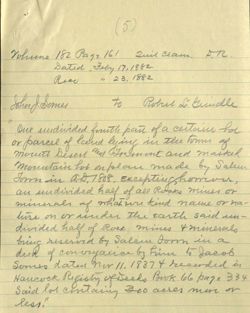 (5)
Volume 182 Page 161 Quit Claim. D.R.
Dated Feby 17, 1882
Rec " 23, 1882
John J. Somes to Robert L. Grindle
"One undivided fourth part of a certain lot
or parcel of land lying in the town of
Mount Desert
Mountain lot on plan made by Salem
Town in A.D. 1808, excepting however,
an undivided half of all Ores mines or
minerals of whatever kind name or na-
ture on or under the earth said un-
divided half of Ores, mines & minerals
being reserved by Salem Town in a
deed of conveyance by him to Jacob
Somes dated Nov. 11, 1837 & recorded in
Hancock Registry of Deeds Book 66 page 334
Said lot containing 300 acres more or
less".